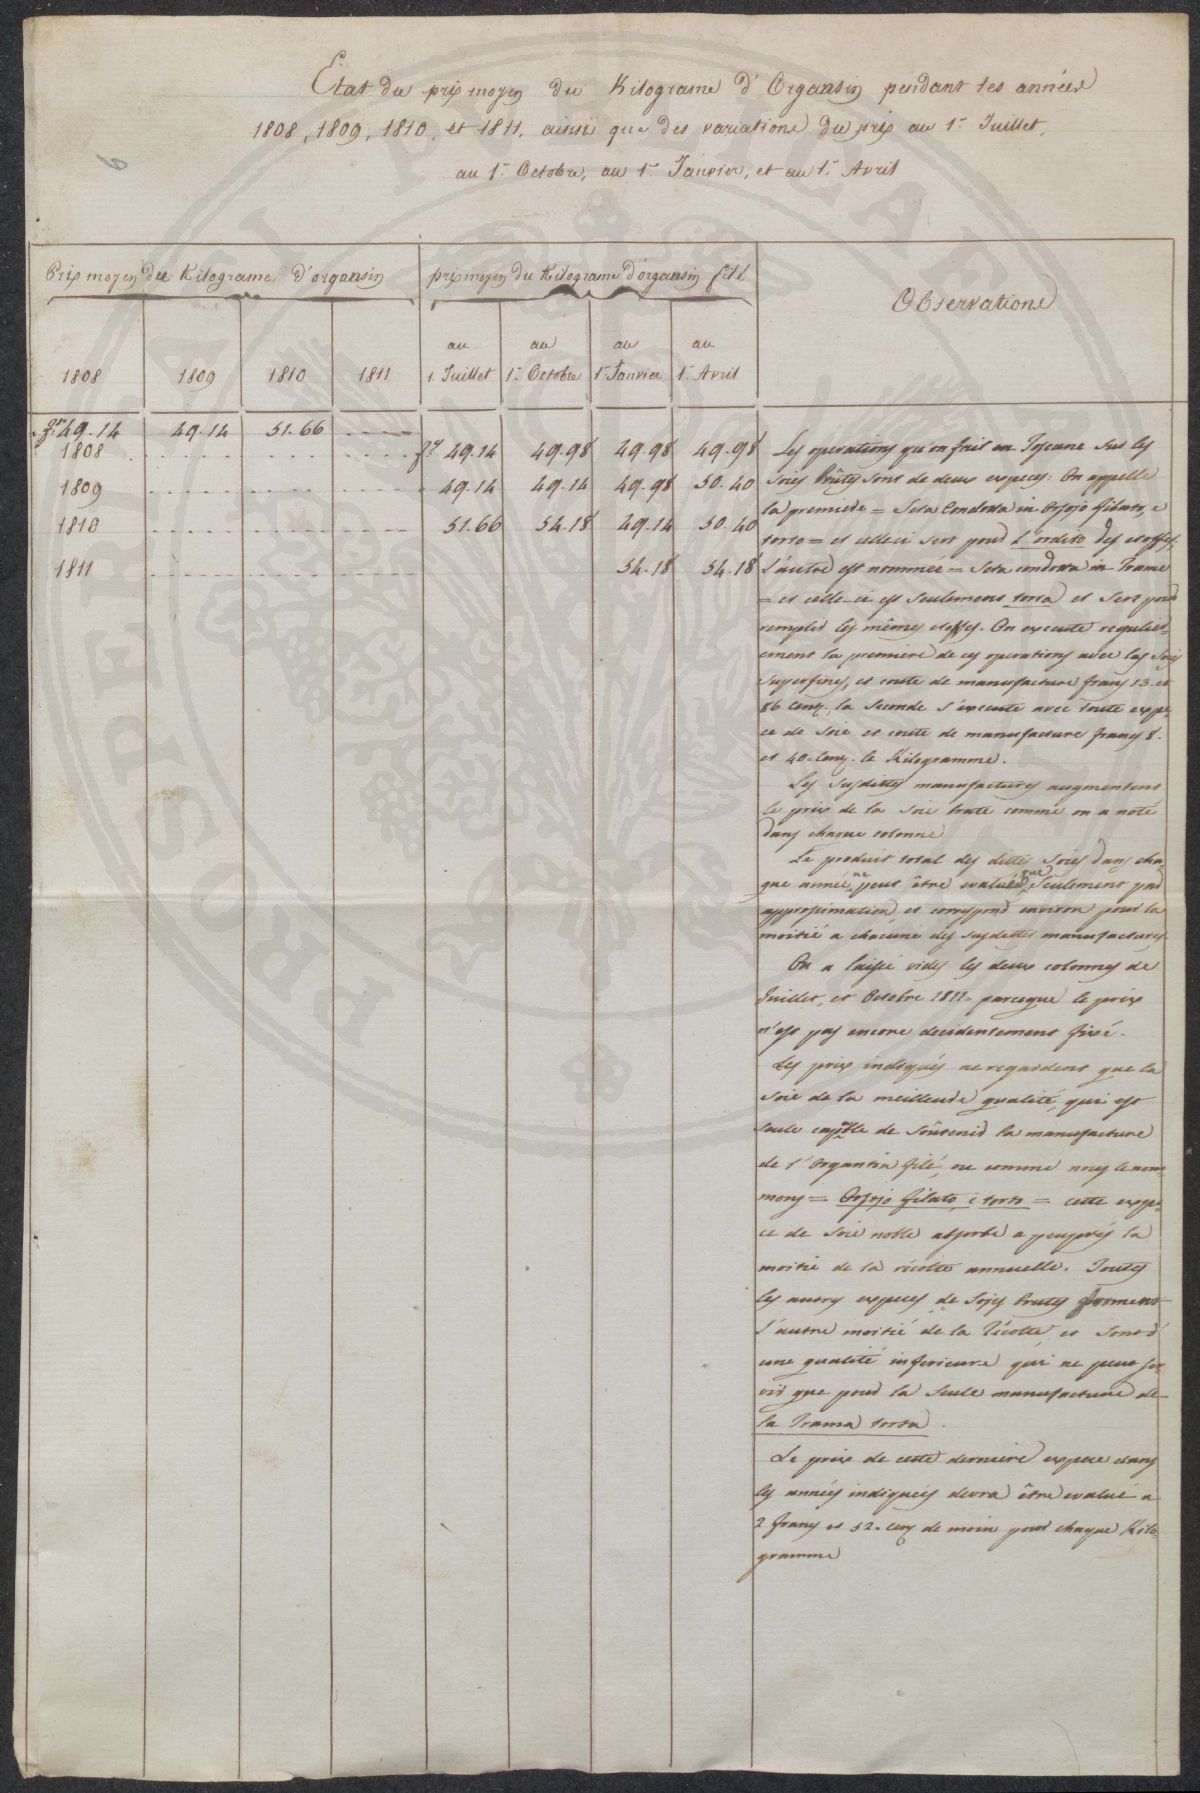 Etat du prix moyen du Kilograme d'Organsin pendant les années
1808, 1809, 1810, et 1811, ainsi que des variations du prix au 1.r Juillet,
au 1.r Octobre, au 1.r Janvier, et au 1.r Avril
Prix moyen du Kilograme d'organsin
prix moyen du Kilograme d'organsin filé
Observations
1808 1809 1810 1811
au 1. Juillet
au 1.r Octobre
au 1.r Janvier
au 1.r Avril
49.14 49.14 51.66
1808 49.14 49.98 49.98 49.98
1809 49.14 49.14 49.98 50.40
1810 51.66 54.18 49.14 50.40
1811 54.18 54.18
Les operations qu'on fait en Toscane sur les
soies brûtes sont de deux especes. On appelle
la premiere = Seta condotta in Orsojo filato, e
torto = et celle ci sert pour l'ordito des etoffes,
L'autre est nommée = Seta condotta in Trame
= et celle-ci est seulement torta et sert pour
remplir les mêmes etoffes. On execute regulier-
ement la premiere de ces operations avec les Soies
superfines, et coute de manufacture francs 13. et
86 cent. la seconde s'execute avec toute espe-
ce de soie et coute de manufacture francs 8.
et 40. cent. le Kilogramme.
Les susdittes manufactures augmentent
le prix de la soie brute comme on a noté
dans chaque colonne
Le produit total des dittes soies dans cha-
que année ne peut être evaluée que seulement par
approximation et correspond environ pour la
moitié a chacune des susdittes manufactures
On a laissé vides les deux colonnes de
Juillet, et Octobre 1811. parceque le prix
n'est pas encore decidentement fixé.
Les prix indiqués ne regardent que la
soie de la meilleure qualité, qui est
seule capable de soûtenir la manufacture
de l'Organsin filé, ou comme nous le nom-
mons = Orsojo filato, e torto = cette espe-
ce de soie noble absorbe a peuprés la
moitié de la récolte annuelle. Toutes
les autres especes de soies brutes forment
l'autre moitié de la récolte, et sont d'
une qualité inferieure qui ne peut ser-
vir que pour la seule manufacture de
la Trama torta.
Le prix de cette derniere espece dans
les années indiquées devra être evalué a
2 francs et 52. cent de moin pour chaque Kilo-
gramme